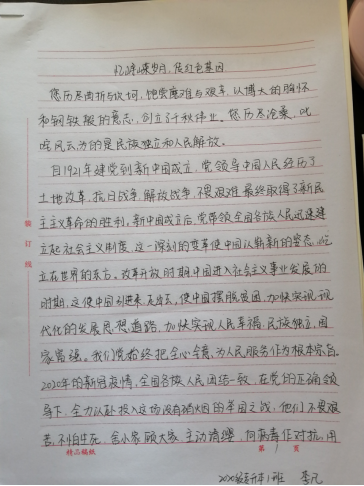 忆峥嵘岁月，传红色基因
您历尽曲折与坎坷，饱尝磨难与艰辛，以博大的胸怀
和钢铁般的意志，创立了千秋伟业。您历尽沧桑，叱
咤风云为的是民族独立和人民解放。
自1921年建党到新中国成立，党领导中国人民经历了
土地改革，抗日战争，解放战争，艰难最终取得了新民
主主义革命的胜利，新中国成立后，党带领全国各族人民迅速建
立起社会主义制度，这一深刻的变革使中国以崭新的姿态，屹
立在世界的东方。改革开放时期中国进入社会主义事业发展的
时期，这使中国，使中国摆脱贫困，加快实现现
代化的发展思想道路，加快实现人民幸福，民族独立，国
家富强。我们党始终把全心全意为人民服务作为根本宗旨。
2020年的新冠疫情，全国各族人民团结一致，在党的正确领
导下，全力以赴投入这场没有硝烟的举国之战，他们不畏艰
苦，不怕生死，舍小家顾大家，主动请缨，向病毒作对抗，用
装订线
精品稿纸
第 1 页
2020级专升本1班 李凡